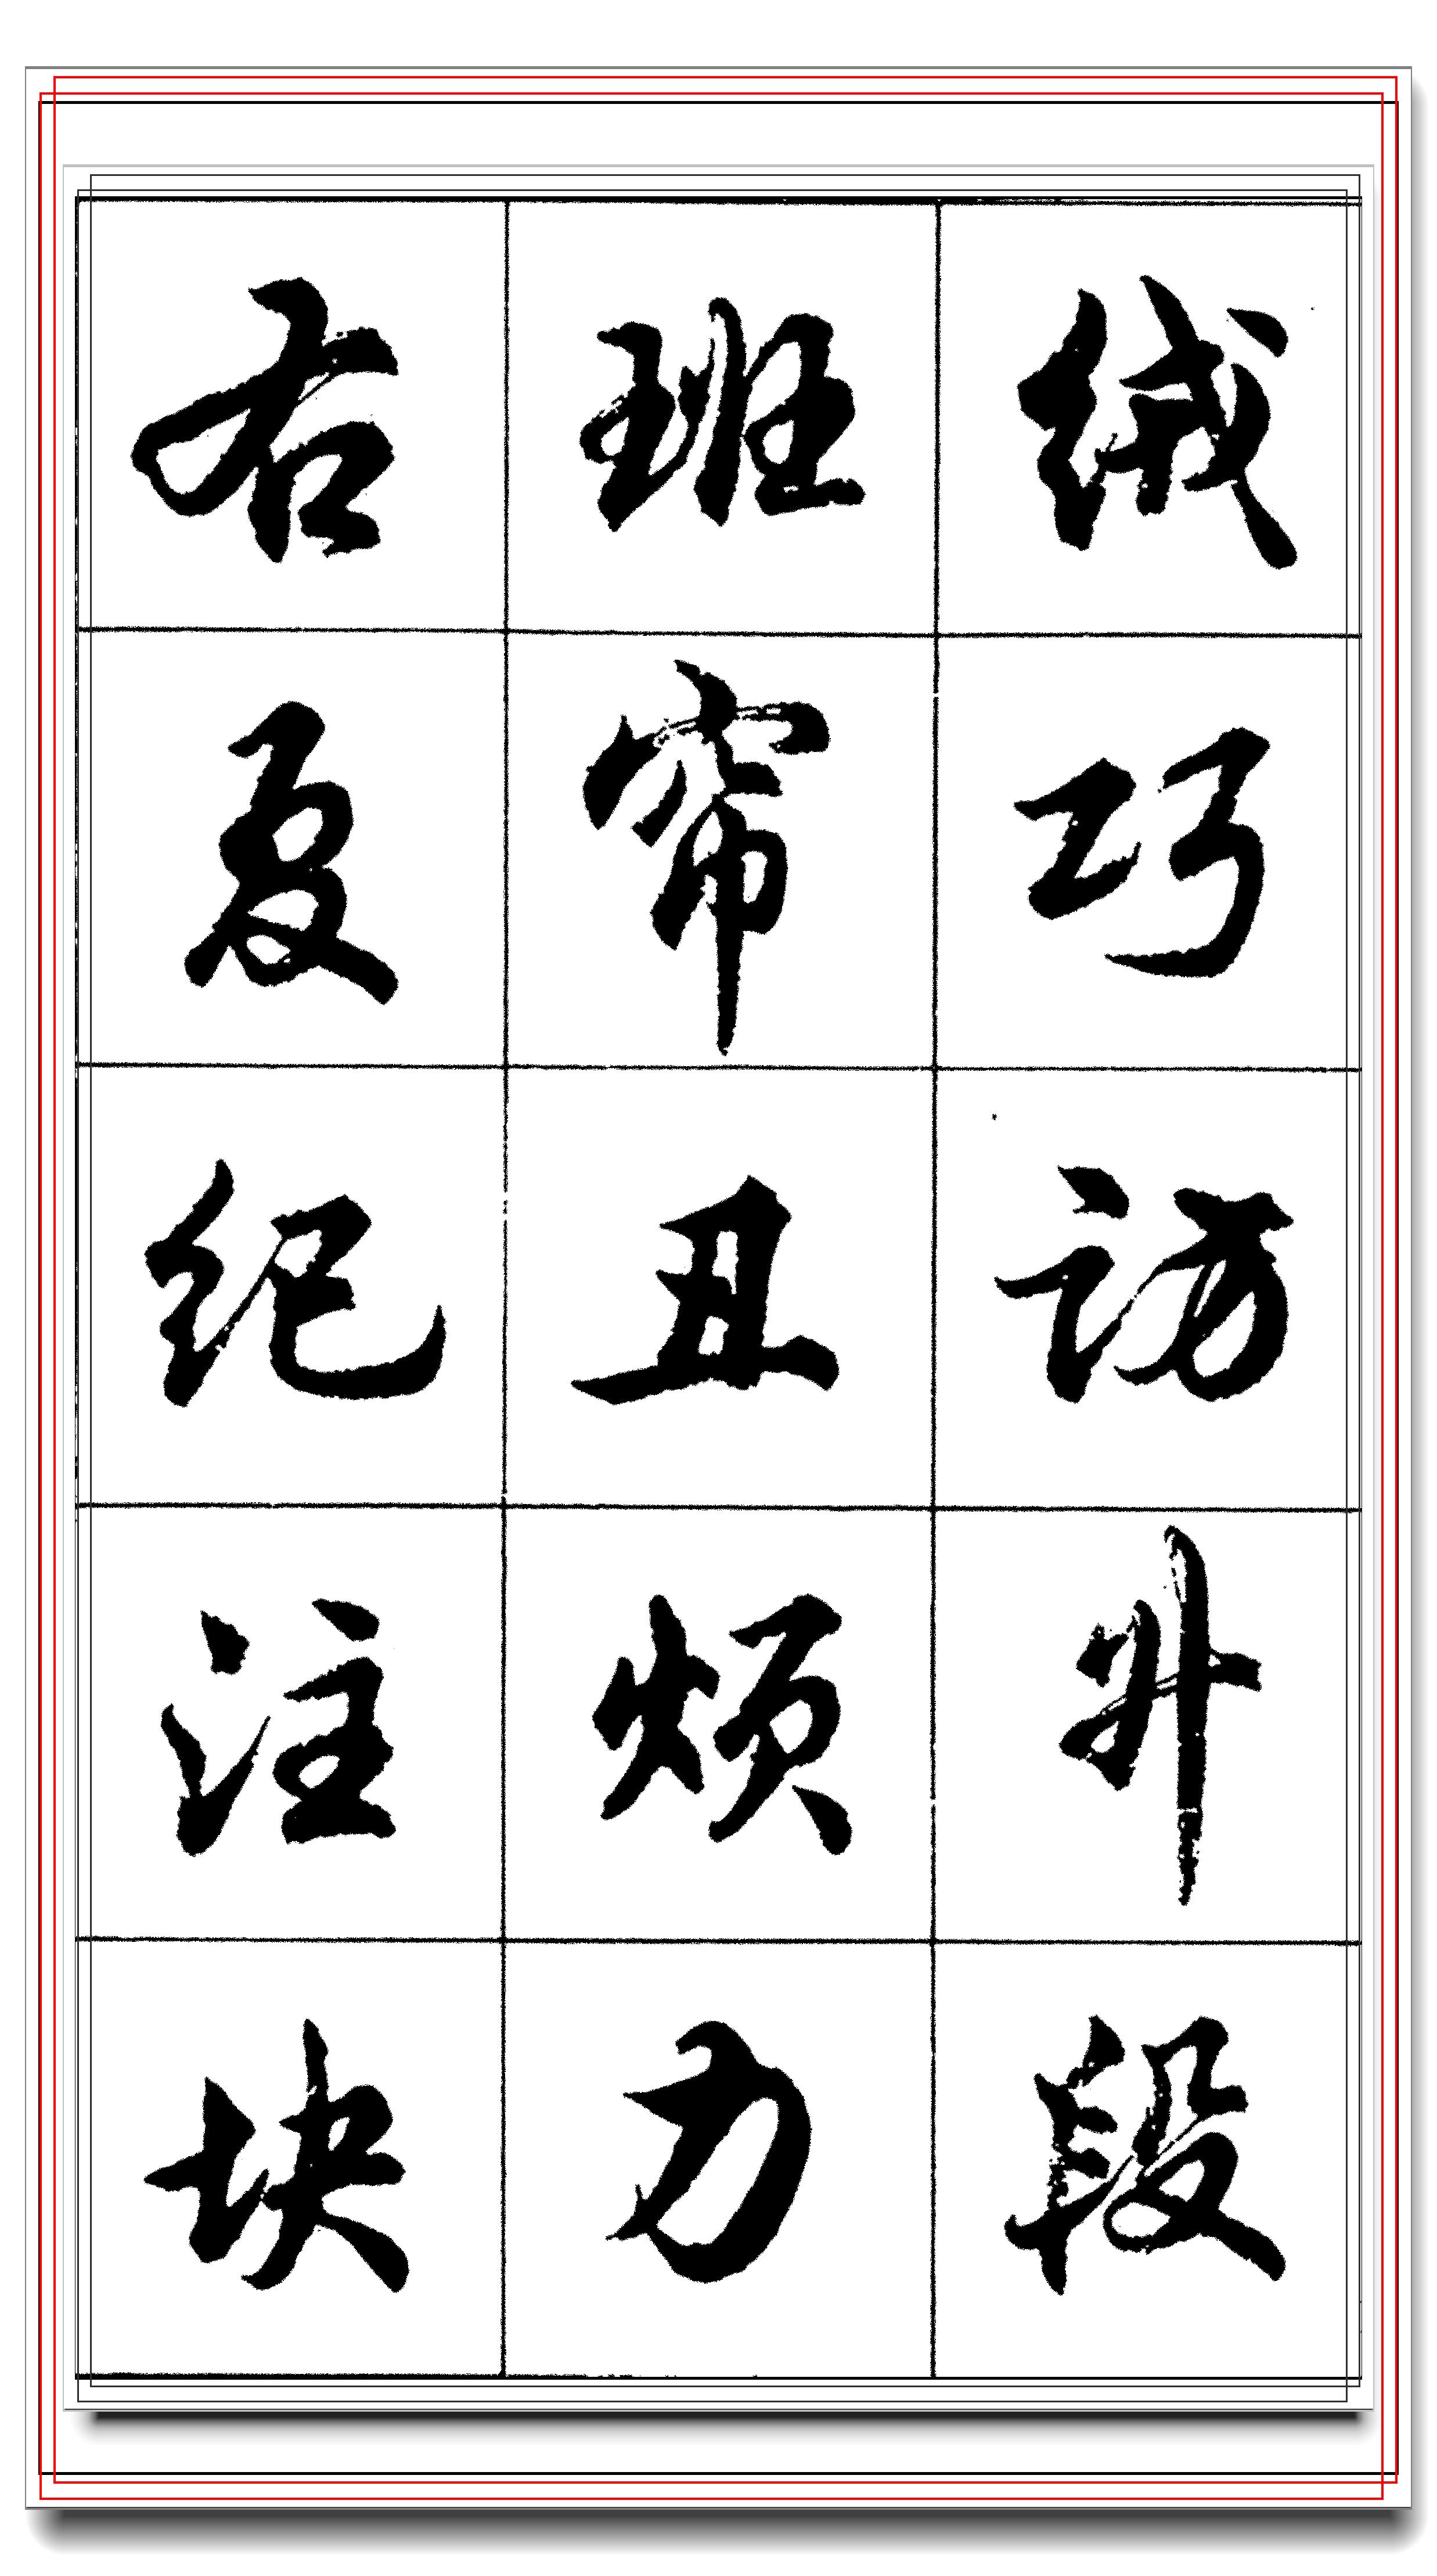 绒巧访升段
班帘丑烦力
右夏纪注块